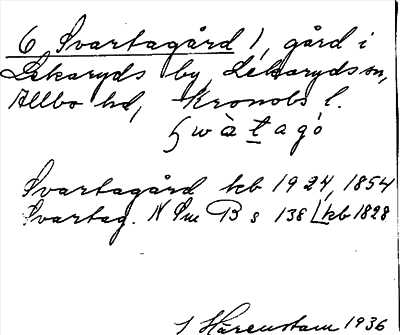 6 Svartagård 1, gård i
Lekaryds by, Lekaryds sn,
Allbo hd, Kronobs l.
swàtagó
Svartagård kb 1924, 1854
Svartag. N Sm B s 138 kb 1828
J Härenstam 1936